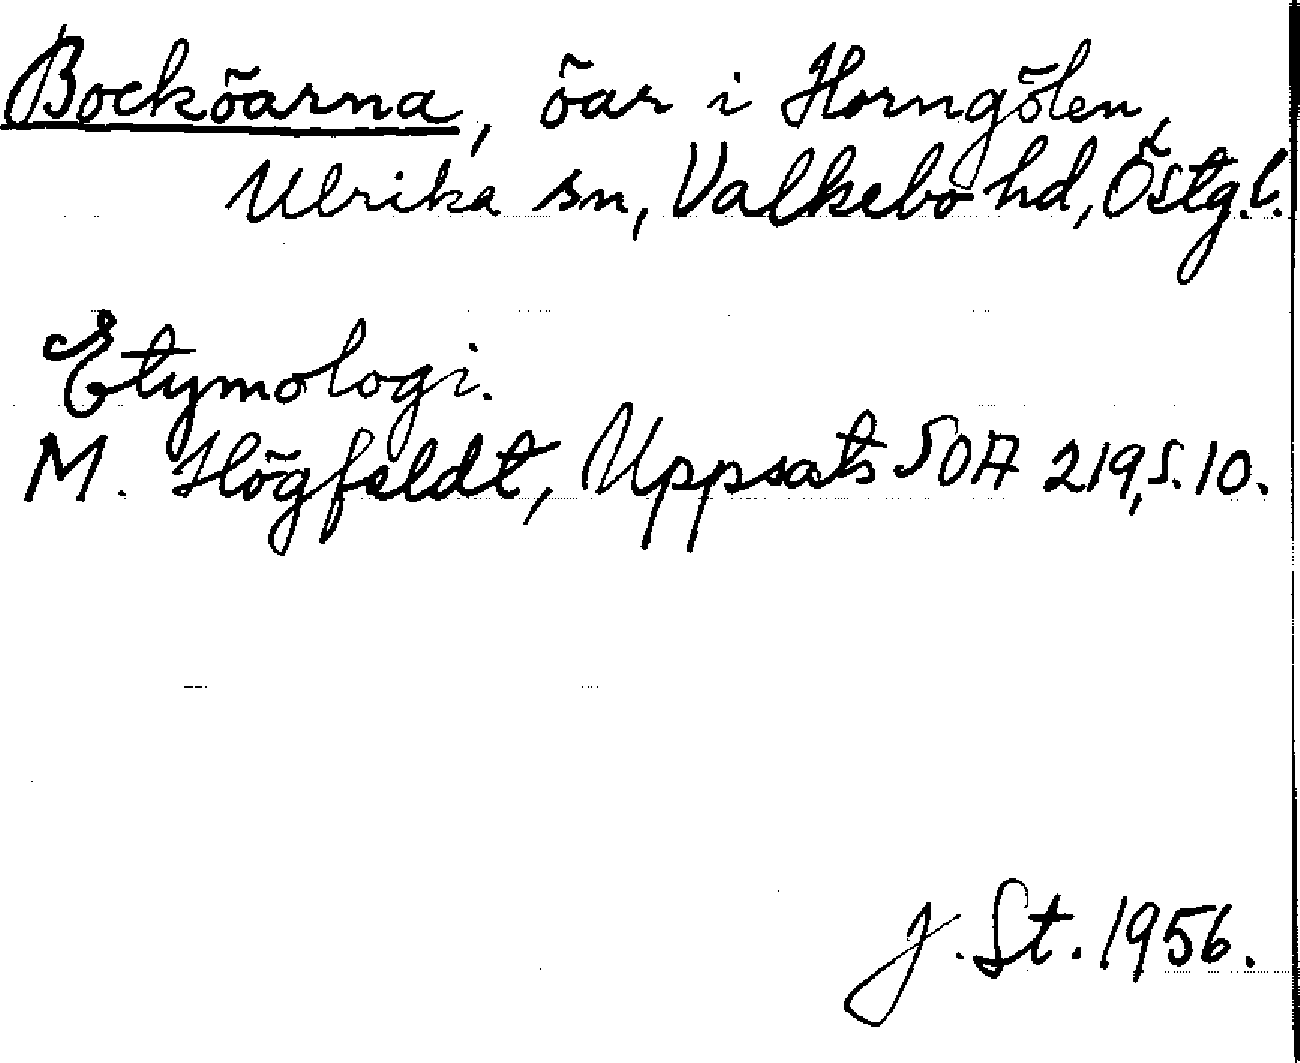 Bocköarna, öar i Horngölen,
Ulrika sn, Valkebo hd, Östg.l.
Etymologi.
M. Högfeldt, Uppsats SOA 219, s. 10.
J. St. 1956.